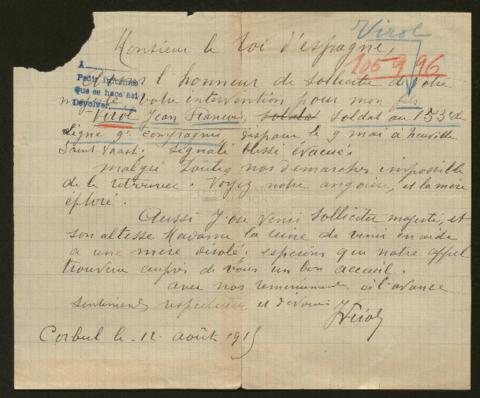 Virol
Monsieur le Roi d'espagne,
105996
A
Pedir informes
Que se hace así
Devolver
l honneur de solliciter de votre
majesté votre intervention pour mon fils
Virol Jean Francois, soldat soldat au 153 de
ligne 9e compagnie disparu le 9 mai à neuville
Saint Vaast. Signalé blessé évacué.
malgré toutes nos demarches impossible
de le retrouver. Voyez notre angoisse, et la mère
éploré.
Aussi J'ose venir solliciter majesté, et
son altesse Madame la reine de venir en aide
a une mère désolé, esperions que notre appel
trouvera auprès de vous un bon accueil.
avec nos remerciements à l'avance
sentiments respectueux et dévoués
JVirol
Corbeil le 12 août 1915